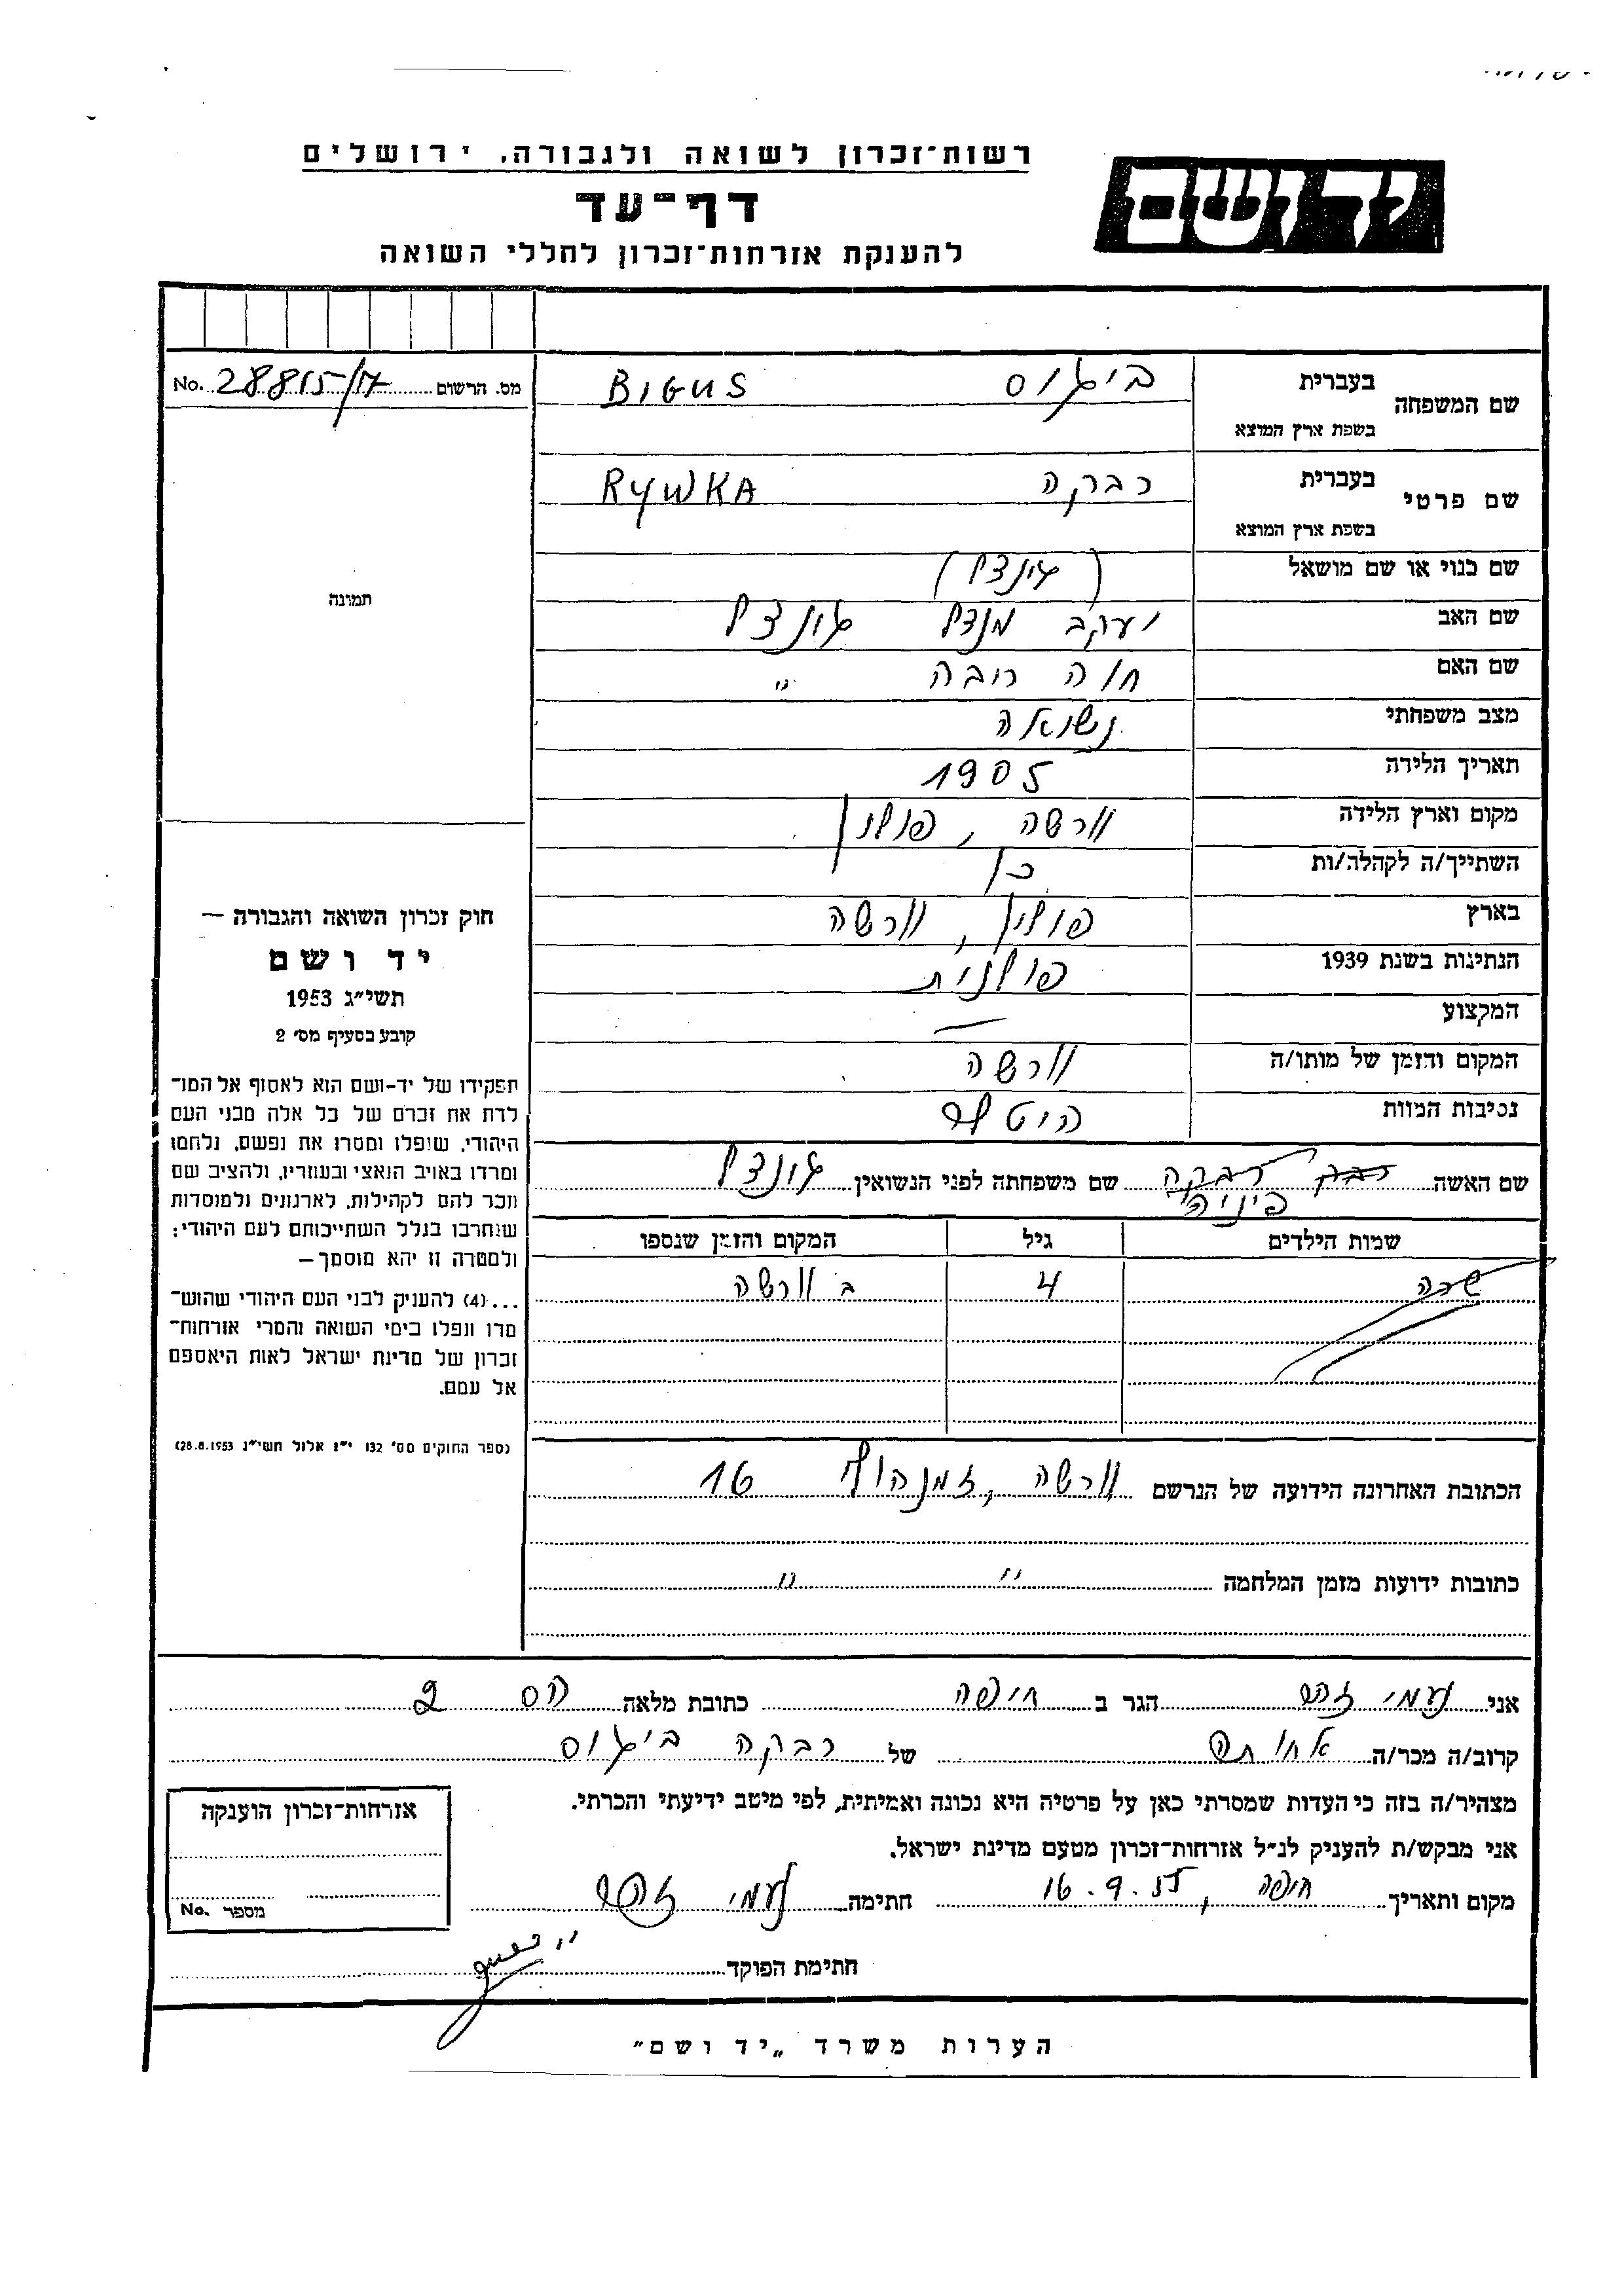 רשות־זכרון לשואה ולגבורה, ירושלים
יד ושם
דף־עד
להענקת אזרחות־זכרון לחללי השואה
מס. הרשום 28815/17 No.
שם המשפחה בעברית ביגוס BIGUS
בשפת ארץ המוצא
שם פרטי בעברית רבקה RYWKA
בשפת ארץ המוצא
תמונה
שם כנוי או שם מושאל (גונצל)
שם האב יעקב מנדל גונצל
שם האם חוה רובה "
מצב משפחתי נשואה
תאריך הלידה 1905
מקום וארץ הלידה וורשה, פולין
השתייך/ה לקהלה/ות כן
בארץ פולין, וורשה
הנתינות בשנת 1939 פולנית
המקצוע —
המקום והזמן של מותו/ה וורשה
נסיבות המוות היטלר
שם האשה רבקה שם משפחתה לפני הנשואין גונצל
פיניה
שמות הילדים גיל המקום והזמן שנספו
שרה 4 ב וורשה
הכתובת האחרונה הידועה של הנרשם וורשה, זמנהוף 16
כתובות ידועות מזמן המלחמה " "
חוק זכרון השואה והגבורה —
יד ושם
תשי״ג 1953
קובע בסעיף מס׳ 2
תפקידו של יד-ושם הוא לאסוף אל המו־
לדת את זכרם של כל אלה מבני העם
היהודי, שנפלו ומסרו את נפשם, נלחמו
ומרדו באויב הנאצי ובעוזריו, ולהציב שם
וזכר להם לקהילות, לארגונים ולמוסדות
שנחרבו בגלל השתייכותם לעם היהודי;
ולמטרה זו יהא מוסמך —
...(4) להעניק לבני העם היהודי שהוש־
מדו ונפלו בימי השואה והמרי אזרחות־
זכרון של מדינת ישראל לאות היאספם
אל עמם.
(ספר החוקים מס׳ 132 י״ז אלול תשי״ג 28.8.1953)
אני נעמי זהב הגר ב חיפה כתובת מלאה הס 2
קרוב/ה מכר/ה אחותה של רבקה ביגוס
מצהיר/ה בזה כי העדות שמסרתי כאן על פרטיה היא נכונה ואמיתית, לפי מיטב ידיעתי והכרתי.
אני מבקש/ת להעניק לנ״ל אזרחות־זכרון מטעם מדינת ישראל.
מקום ותאריך חיפה, 16.9.55 חתימה נעמי זהב
חתימת הפוקד
אזרחות־זכרון הוענקה
מספר No.
הערות משרד „יד ושם"